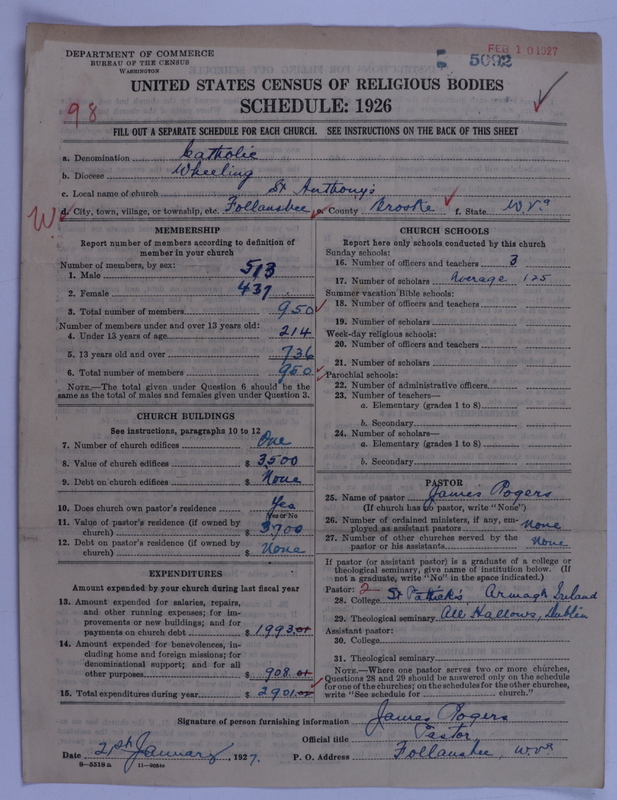 DEPARTMENT OF COMMERCE
BUREAU OF THE CENSUS
WASHINGTON
FEB 10 1927
5092
UNITED STATES CENSUS OF RELIGIOUS BODIES
SCHEDULE: 1926
98
FILL OUT A SEPARATE SCHEDULE FOR EACH CHURCH. SEE INSTRUCTIONS ON THE BACK OF THIS SHEET
a. Denomination Catholic
b. Diocese Wheeling
c. Local name of church St Anthony's
W.
d. City, town, village, or township, etc. Follansbee e. County Brooke f. State W.Va
MEMBERSHIP
Report number of members according to definition of
member in your church
Number of members, by sex:
1. Male 513
2. Female 437
3. Total number of members 950
Number of members under and over 13 years old:
4. Under 13 years of age 214
5. 13 years old and over 736
6. Total number of members 950
NOTE.—The total given under Question 6 should be the
same as the total of males and females given under Question 3.
CHURCH BUILDINGS
See instructions, paragraphs 10 to 12
7. Number of church edifices One
8. Value of church edifices $ 3500
9. Debt on church edifices $ None
10. Does church own pastor's residence Yes
Yes or No
11. Value of pastor's residence (if owned by
church) $ 3700
12. Debt on pastor's residence (if owned by
church) $ None
EXPENDITURES
Amount expended by your church during last fiscal year
13. Amount expended for salaries, repairs,
and other running expenses; for im-
provements or new buildings; and for
payments on church debt $ 1993.01
14. Amount expended for benevolences, in-
cluding home and foreign missions; for
denominational support; and for all
other purposes $ 908.01
15. Total expenditures during year $ 2901.02
CHURCH SCHOOLS
Report here only schools conducted by this church
Sunday schools:
16. Number of officers and teachers 3
17. Number of scholars Average 125
Summer vacation Bible schools:
18. Number of officers and teachers
19. Number of scholars
Week-day religious schools:
20. Number of officers and teachers
21. Number of scholars
Parochial schools:
22. Number of administrative officers
23. Number of teachers—
a. Elementary (grades 1 to 8)
b. Secondary
24. Number of scholars—
a. Elementary (grades 1 to 8)
b. Secondary
PASTOR
25. Name of pastor James Rogers
(If church has no pastor, write "None")
26. Number of ordained ministers, if any, em-
ployed as assistant pastors None
27. Number of other churches served by the
pastor or his assistants None
If pastor (or assistant pastor) is a graduate of a college or
theological seminary, give name of institution below. (If
not a graduate, write "No" in the space indicated.)
Pastor: 2
28. College St Patrick's Armagh Ireland
29. Theological seminary All Hallows, Dublin
Assistant pastor:
30. College
31. Theological seminary
NOTE.—Where one pastor serves two or more churches,
Questions 28 and 29 should be answered only on the schedule
for one of the churches; on the schedules for the other churches,
write "See schedule for church."
Signature of person furnishing information James Rogers
Official title Pastor
Date 21st January, 1927. P. O. Address Follansbee, W.Va
8—5318a